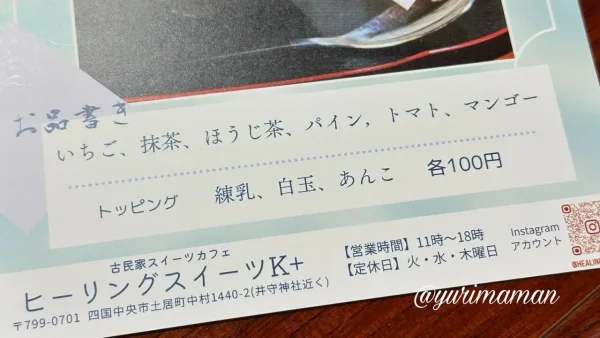 お品書き
いちご、抹茶、ほうじ茶、パイン,トマト、マンゴー
トッピング 練乳、白玉、あんこ 各100円
古民家スイーツカフェ
ヒーリングスイーツK+
〒799-0701 四国中央市土居町中村1440-2(井守神社近く)
【営業時間】11時〜18時
【定休日】火・水・木曜日
Instagram
アカウント
@HEALING
@yurimaman